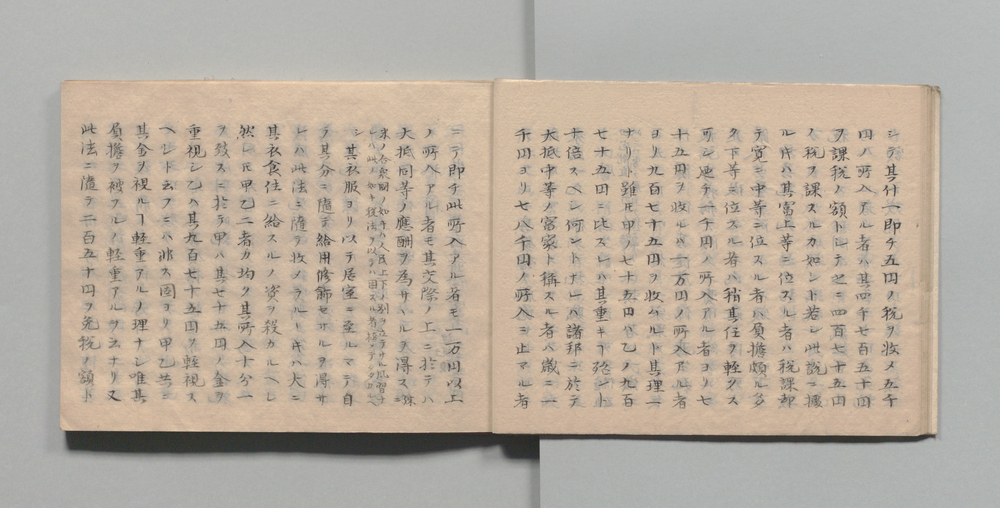 シテ其什一即チ五円ノ税ヲ收メ五千
円ノ所入アル者ハ其四千七百五十円
ヲ課税ノ額トシテ之ニ四百七十五円
ノ税ヲ課スルカ如シト若シ此説ニ據
ル片ハ其富上等ニ位スル者ハ税課却
テ寛ニ中等ニ位スル者ハ負擔頗ル多
ク下等ニ位スル者ハ稍其任ヲ輕クス
可シ 即チ一千円ノ所入アル者ヨリ七
十五円ヲ收ルハ一万円ノ所入アル者
ヨリ九百七十五円ヲ收ムルト其理一
ナリト雖𪜈甲ノ七十五円ハ乙ノ九百
七十五円ニ比スレハ其重キヿ殆ント
十倍スヘシ何ントナレハ諸邦ニ於テ
大抵中等ノ富家ト稱スル者ハ歳ニ一
千円ヨリ七八千円ノ所入ニ止マル者
ニテ即チ此所入アル者モ一万円以上
ノ所入アル者モ其交際ノ上ニ於テハ
大抵同等ノ應酬ヲ為サヽルヲ得ス 殊ニ
米ノ合衆國ノ如キハ人民上下ノ別ヲ立テサル風習ナ
レハ此ノ如キ税法ヲ以テハ困スル者
シ 其衣服ヨリ以テ居室ニ至ルマテ自
ラ其分ニ随テ給用修飾セサルヲ得サ
レハ此法ニ隨テ收メラルヽキハ大ニ
其衣食住ニ給スルノ資ヲ殺カルヘシ
然レ𪜈甲乙二者カ均ク其所入十分一
ヲ發スニ於テ甲ハ其七十五円ノ金ヲ
重視シ乙ハ其九百七十五円ヲ輕視ス
ヘシト云フニハ非ス固ヨリ甲乙共ニ
其金ヲ視ルヿ輕重アルノ理ナシ唯其
負擔ヲ被フルノ輕重アルヲ云ナリ又
此法ニ隨テ二百五十円ヲ免税ノ額ト